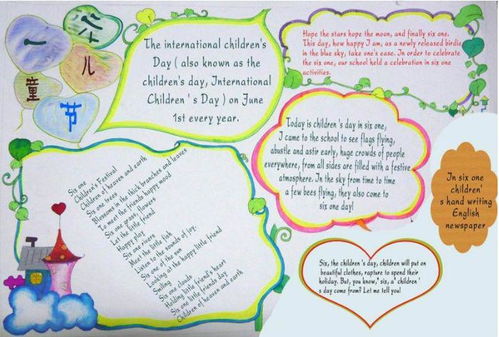 六
一
儿
童
节
The international children's
Day ( also known as the
children's day, International
Children ' s Day ) on June
1st every year.
Hope the stars hope the moon, and finally six one.
This day, how happy I am, as a newly released birdie
in the blue sky, take one's ease. In order to celebrate
the six one, our school held a celebration in six one
activities.
Today is children 's day in six one,
I came to the school to see flags flying,
abustle and astir early, huge crowds of people
everywhere, from all sides are filled with a festive
atmosphere. In the sky from time to time
a few bees flying, they also come to
six one day!
In six one
children'
s hand writing
English
newspaper
Six one
Children's Festival
Children of heaven and earth
Six one trees
Blossoms in the thick branches and leaves
To meet the friends happy mood
Six one grass, flowers
Let the little friend
Happy play
Six one rivers
Meet the little fish
Listen to the sounds of joy.
Six one of the sun
Looking at the happy little friend
Smiling
Six one clouds
Holding little friend's heart
Six one little friends day
Children of heaven and earth
Six, the children 's day, children will put on
beautiful clothes, rapture to spend their
holiday. But, you know,' six, a' children '
s day come from? Let me tell you!